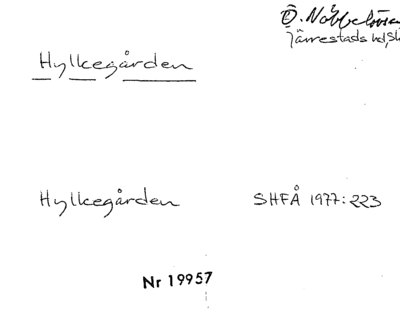 Ö. Nöbbelöv
Järrestads hd, Sk
Hylkegården
Hylkegården SHFÅ 1977:223
Nr 19957